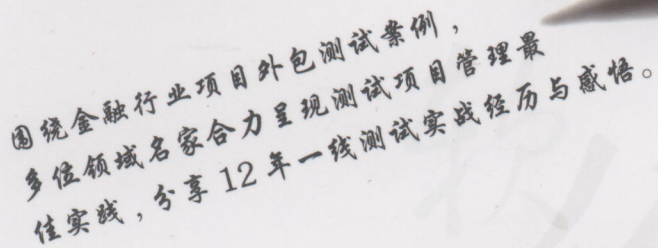 围绕金融行业项目外包测试案例，
多位领域名家合力呈现测试项目管理最
佳实践，分享12年一线测试实战经历与感悟。